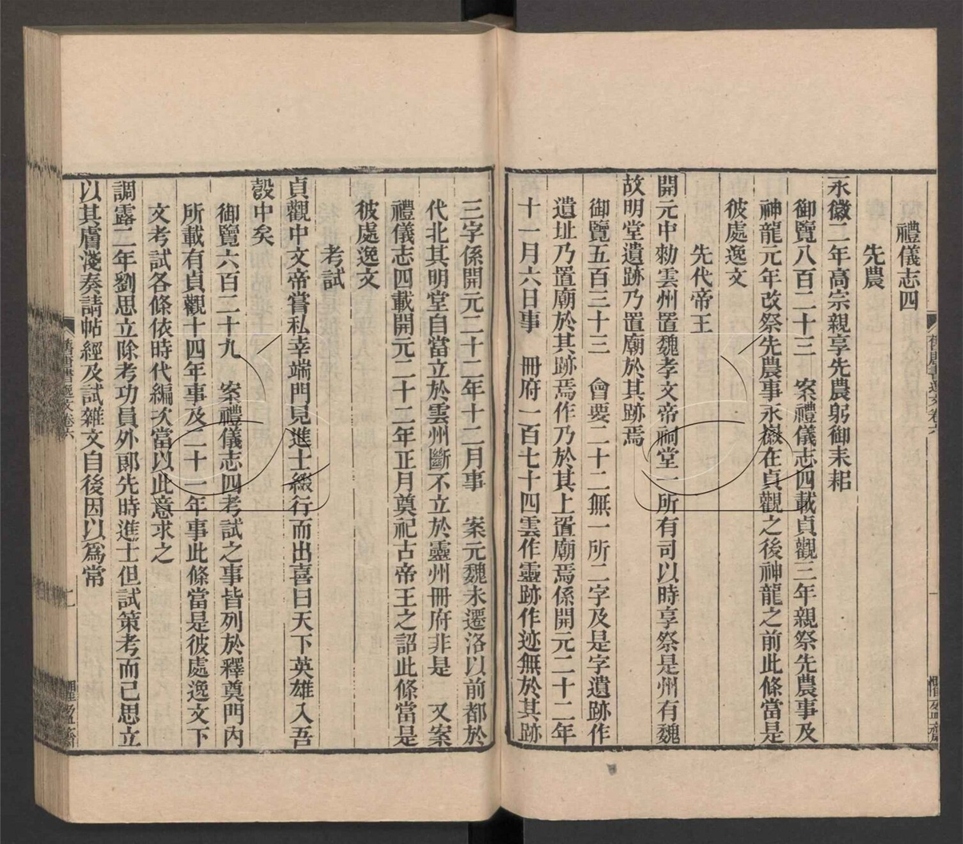 禮儀志四
先農
永徽二年高宗親享先農躬御耒耜
御覽八百二十三 案禮儀志四載貞觀三年親祭先農事及
神龍元年改祭先農事永徽在貞觀之後神龍之前此條當是
彼處逸文
先代帝王
開元中勅雲州置魏孝文帝祠堂一所有司以時享祭是州有魏
故明堂遺跡乃置廟於其跡焉
御覽五百三十三 會要二十二無一所二字及是字遺跡作
遺址乃置廟於其跡焉作乃於其上置廟焉係開元二十二年
十一月六日事 冊府一百七十四雲作靈跡作迹無於其跡
三字係開元二十二年十二月事 案元魏未遷洛以前都於
代北其明堂自當立於雲州斷不立於靈州冊府非是 又案
禮儀志四載開元二十二年正月奠祀古帝王之詔此條當是
彼處逸文
考試
貞觀中文帝嘗私幸端門見進士綴行而出喜曰天下英雄入吾
彀中矣
御覽六百二十九 案禮儀志四考試之事皆列於釋奠門內
所載有貞觀十四年事及二十一年事此條當是彼處逸文下
文考試各條依時代編次當以此意求之
調露二年劉思立除考功員外郎先時進士但試策考而已思立
以其膚淺奏請帖經及試雜文自後因以爲常
舊唐書逸文卷六